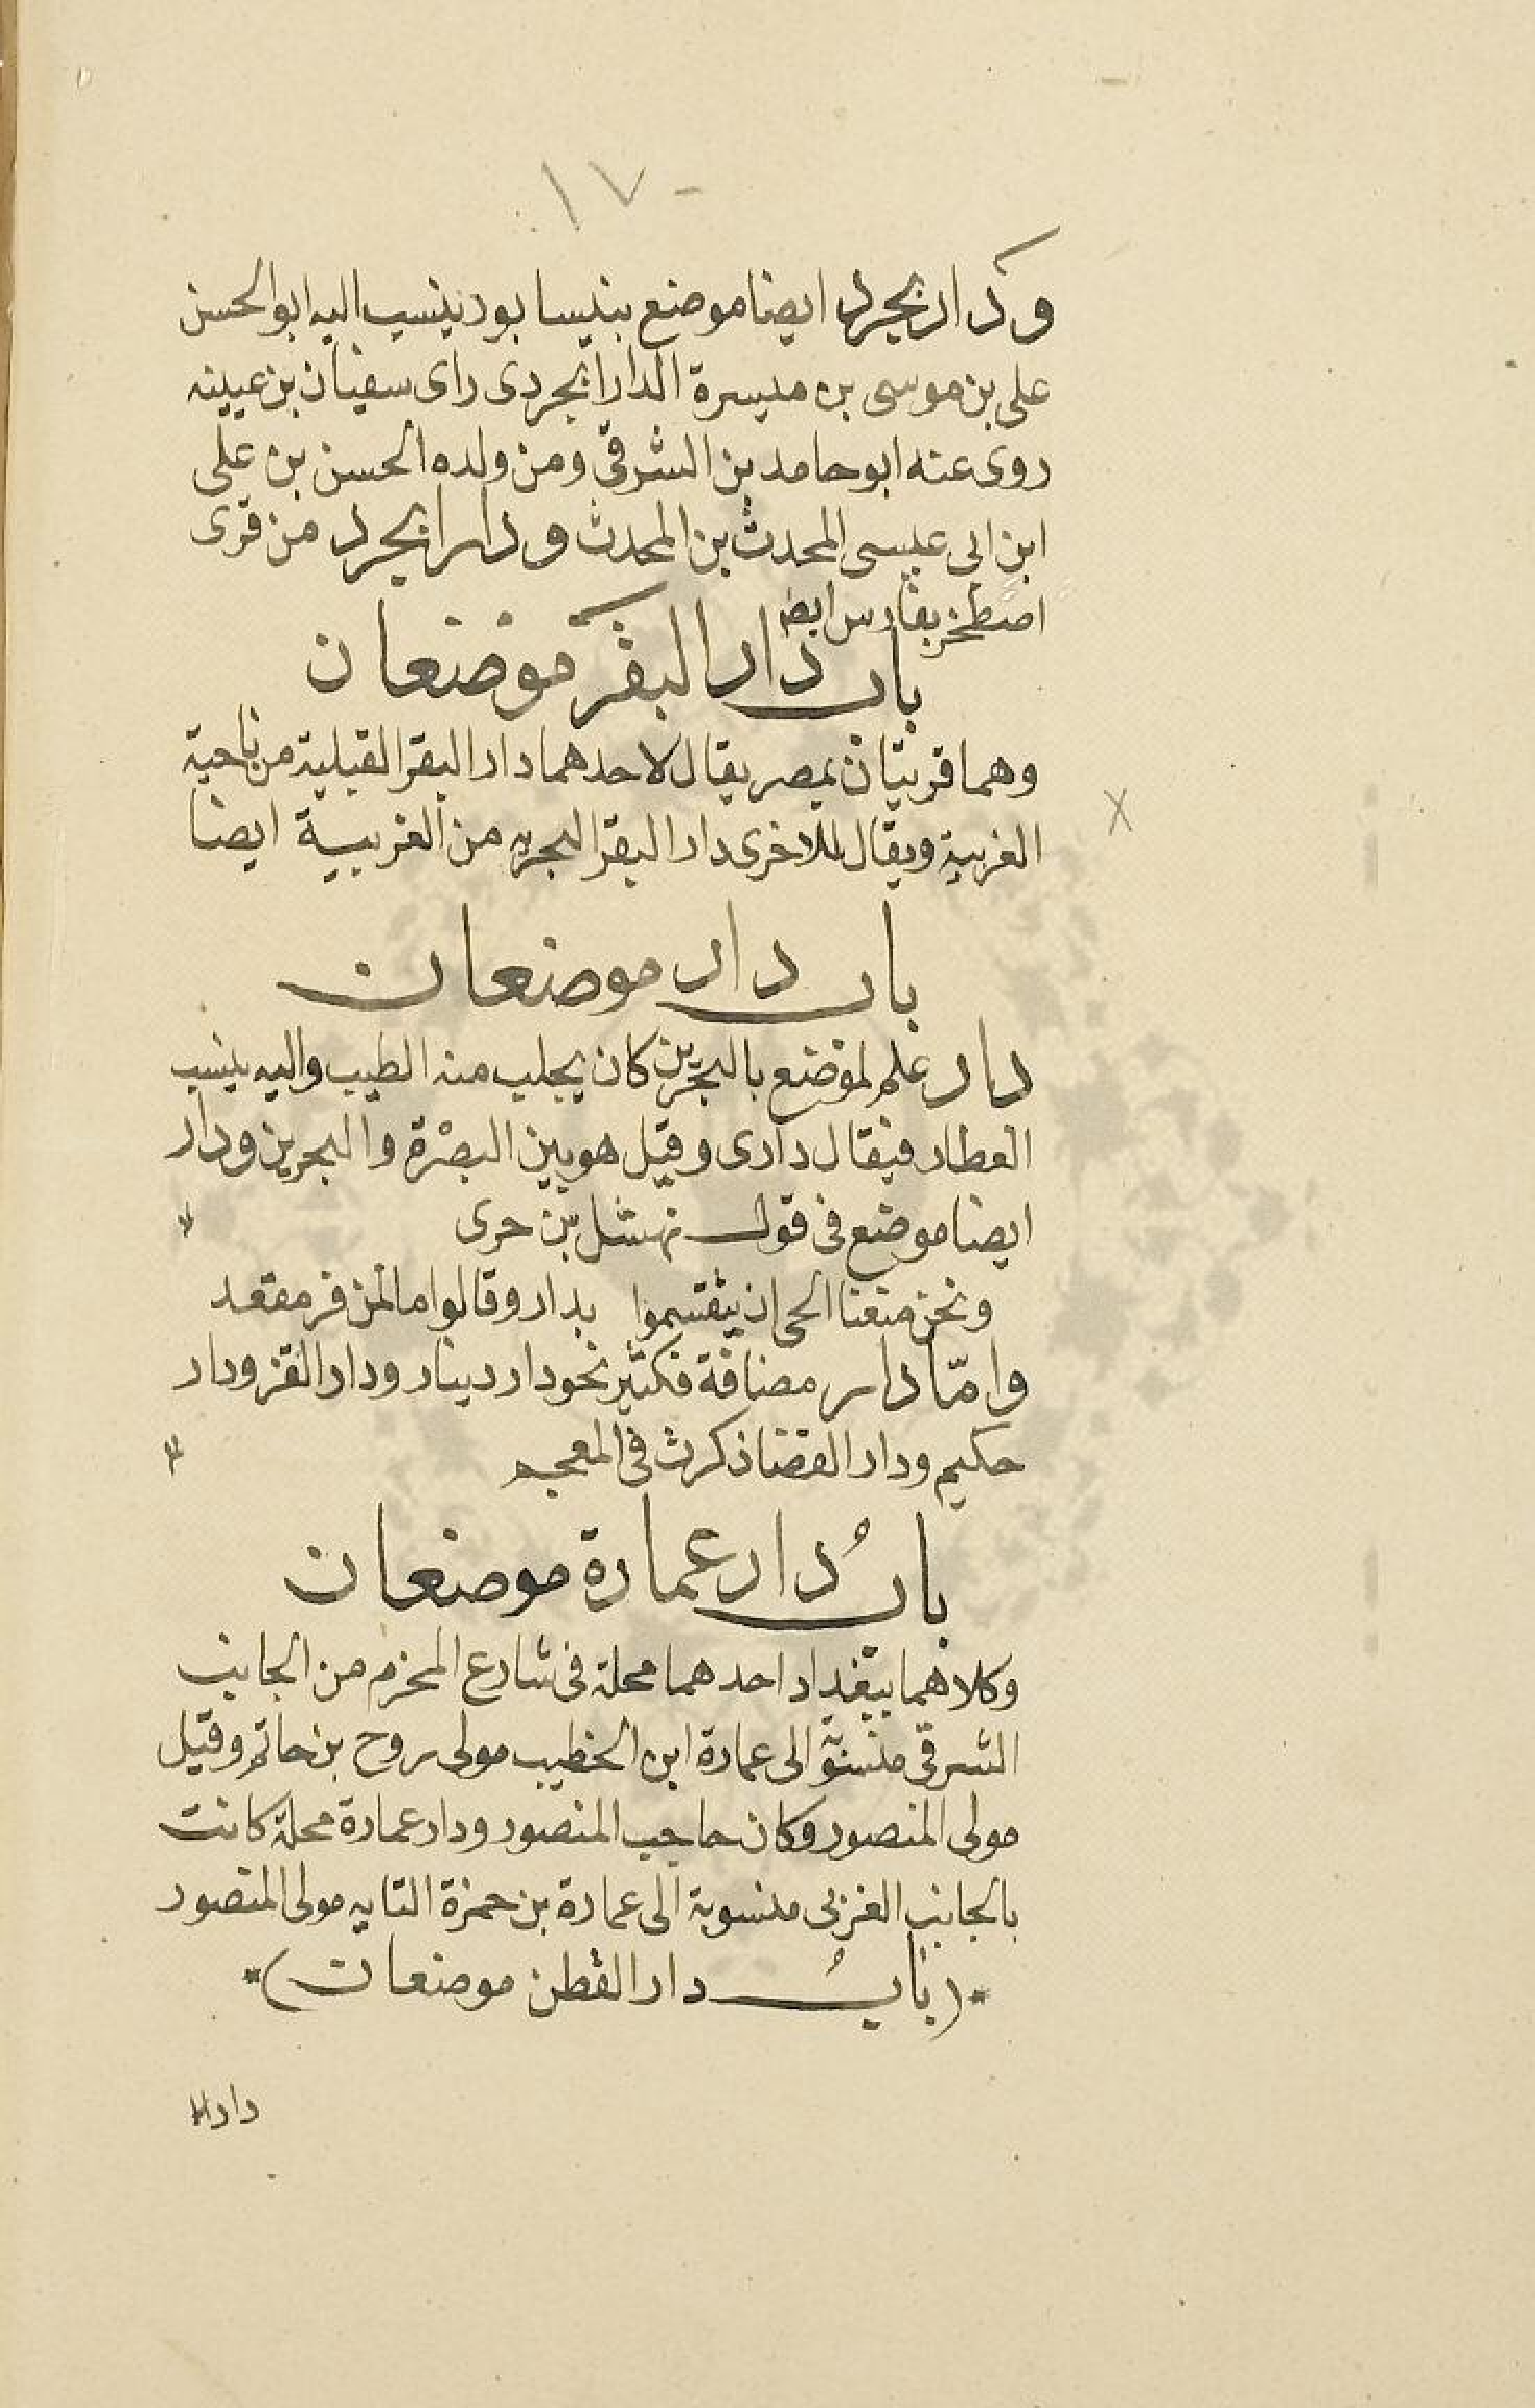 ١٧٠
ودارنجرد ايضا موضع بنيسابور ينسب اليه ابو الحسن
على بن موسى بن ميسرة الدارانجردى راى سفيان بن عيينه
روى عنه ابو حامد بن الشرقى ومن ولده الحسن بن على
ابن ابى عيسى المحدث بن المحدث ودارانجرد من قرى
اصطخر بفارس ايضا
باب دار البقر موضعان
وهما قريتان بمصر يقال لاحدهما دار البقر القبلية من ناحية
الغربية ويقال للاخرى دار البقر البحريه من الغربيية ايضا
باب دار موضعان
دار علم لموضع بالبحرين كان يجلب منه الطيب واليه ينسب
العطار فيقال دارى وقيل هو بين البصرة والبحرين ودار
ايضا موضع فى قول نهشل بن حرى
ونحن منعنا الحى ان يتقسموا بدار وقالوا ما لمن فر مقعد
وامّا دار مضافة فكثير نحو دار دينار ودار القز ودار
حكيم ودار القضا ذكرت فى المعجم
بابُ دار عمارة موضعان
وكلاهما ببغداد احدهما محلة فى شارع المخرم من الجانب
الشرقى منسوبة الى عمارة ابن الخطيب مولى روح بن حاتم وقيل
مولى المنصور وكان حاجب المنصور ودار عمارة محلة كانت
بالجانب الغربى منسوبة الى عمارة بن حمزة التايه مولى المنصور
*(بابُ دار القطن موضعان)*
دار